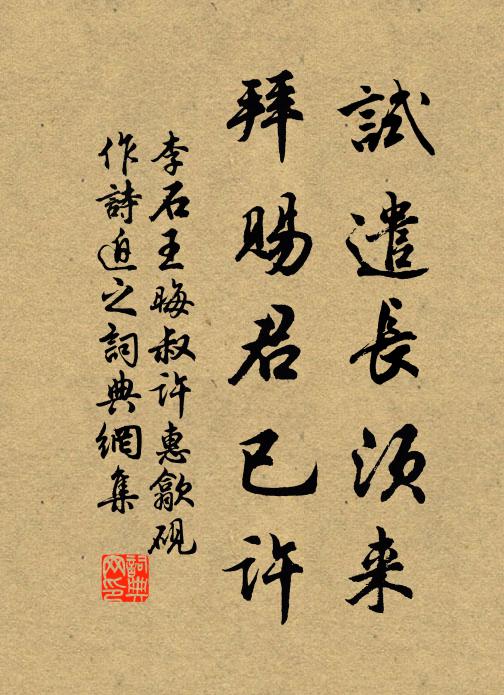 試遣長須来
拜賜君已許
李石王晦叔許惠歙硯
作詩迫之詞典網集
詞典
网印